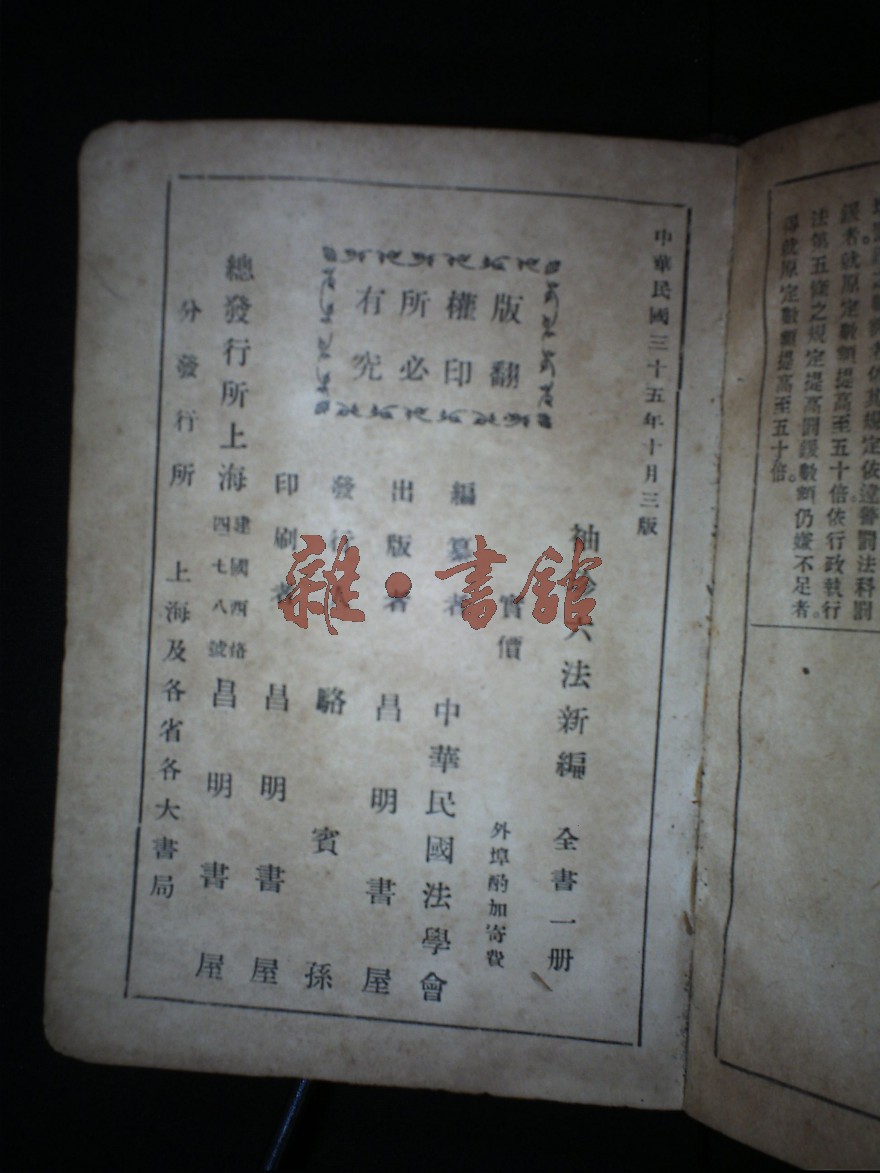 依其規定依違警罰法科罰
鍰者就原定數額提高至五十倍。依行政執行
法第五條之規定提高罰鍰數額仍嫌不足者。
得就原定數額提高至五十倍。
中華民國三十五年十月三版
袖珍六法新編 全書一册
實價 外埠酌加寄費
版權所有
翻印必究
編纂者 中華民國法學會
出版者 昌明書屋
發行人 駱賓孫
印刷者 昌明書屋
總發行所上海 建國西路四七八號 昌明書屋
分發行所 上海及各省各大書局
雜·書館